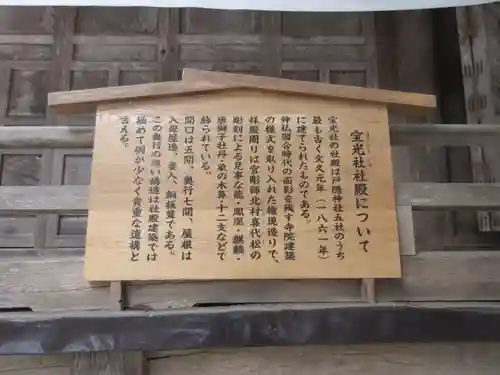 宝光社社殿について
宝光社の社殿は戸隠神社五社のうち
最も古く文久元年(一八六一年)
に建てられたものである。
神仏習合時代の面影を残す寺院建築
の様式を取り入れた権現造りで、
拝殿周りは宮彫師北村喜代松の
彫刻による見事な龍・鳳凰・麒麟・
唐獅子牡丹・象の木鼻・十二支などで
飾られている。
間口は五間、奥行七間、屋根は
入母屋造、妻入、銅板葺である。
この奥行の深い構造は社殿建築では
極めて例が少なく貴重な遺構と
言える。